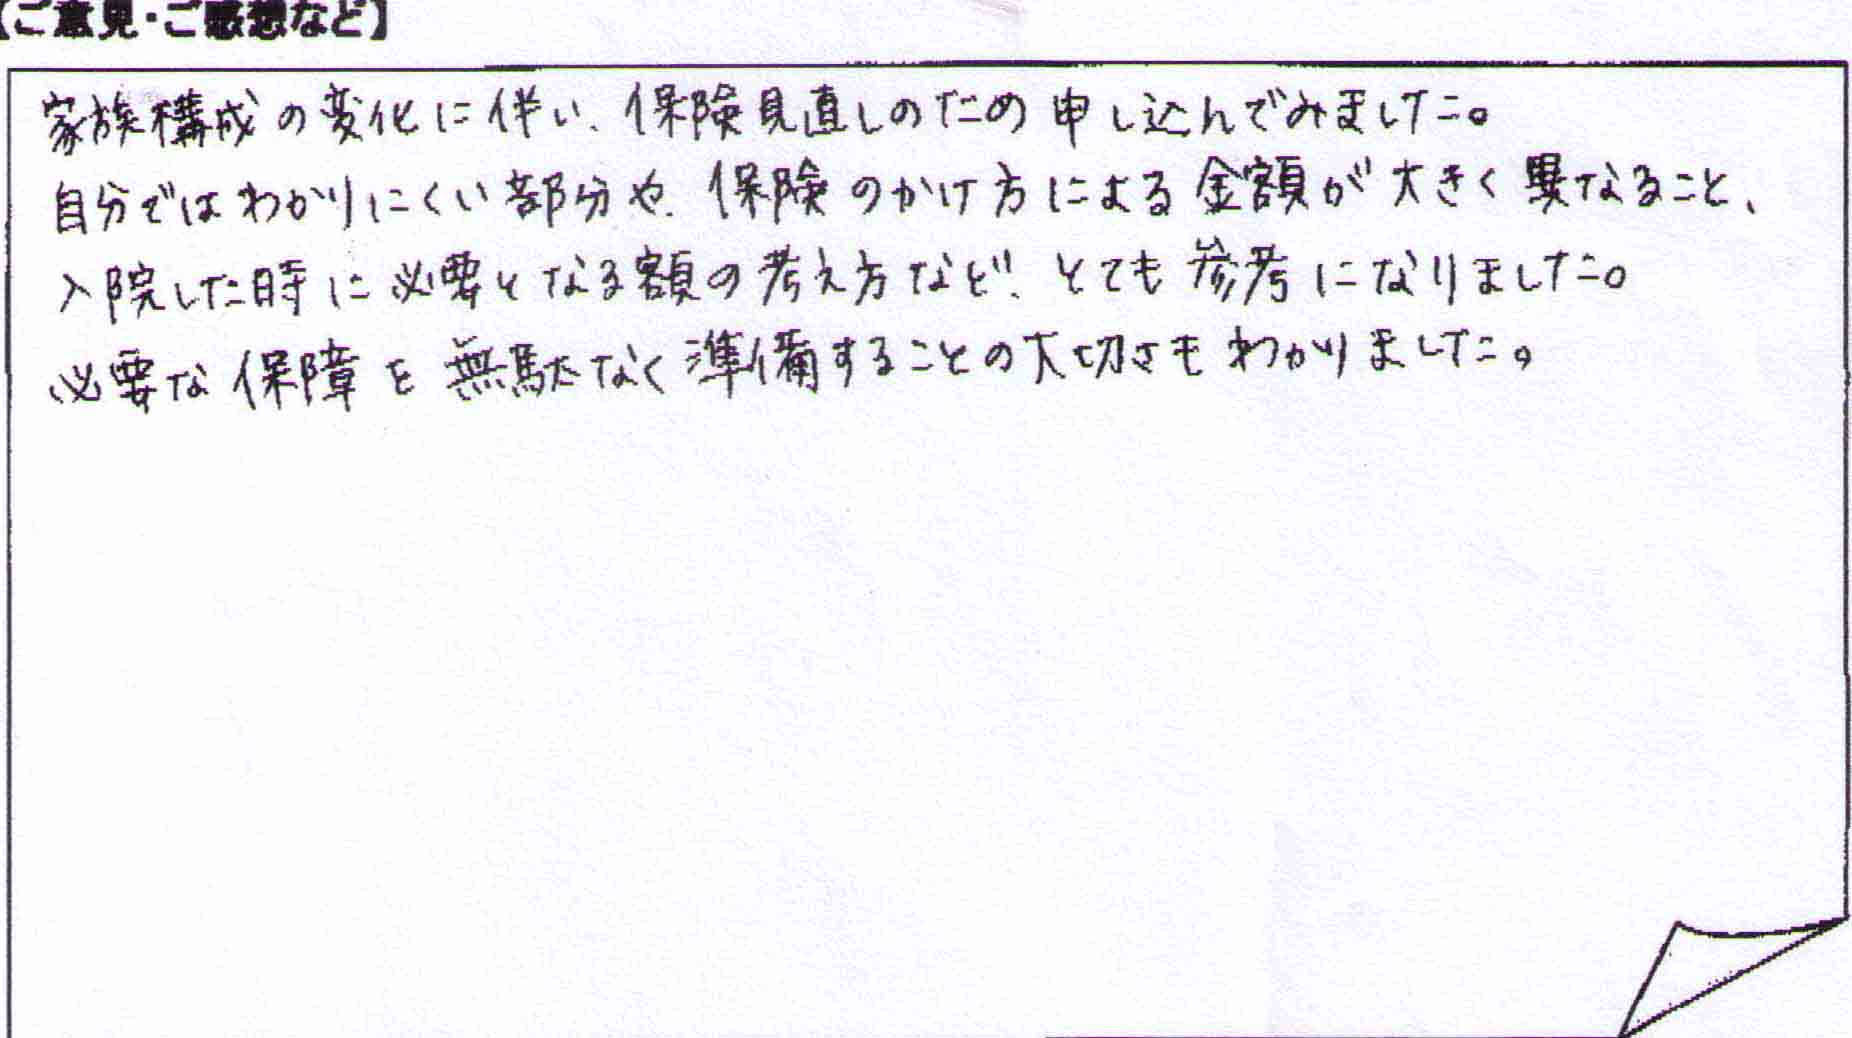 【ご意見・ご感想など】
家族構成の変化に伴い、保険見直しのため申し込んでみました。
自分ではわかりにくい部分や、保険のかけ方による金額が大きく異なること、
入院した時に必要となる額の考え方など、とても参考になりました。
必要な保障を無駄なく準備することの大切さもわかりました。